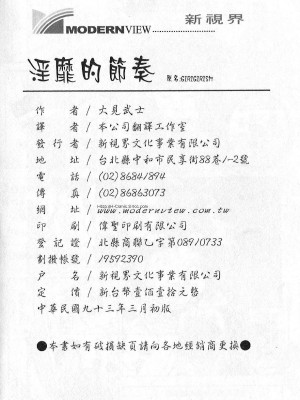 新視界
MODERNVIEW
淫靡的節奏
作者/大見武士
譯者/本公司翻譯工作室
發行者/新視界文化事業有限公司
地址/台北縣中和市民享街88巷1-2號
電話/(02)86841894
傳真/(02)86863073
網址/www.modernview.com.tw
印刷/偉聖印刷有限公司
登記證/北縣商聯乙字第08910733
劃撥帳號/19592390
戶名/新視界文化事業有限公司
定價/新台幣壹佰壹拾元整
中華民國九十三年三月初版
●本書如有破損缺頁請向各地經銷商更換●